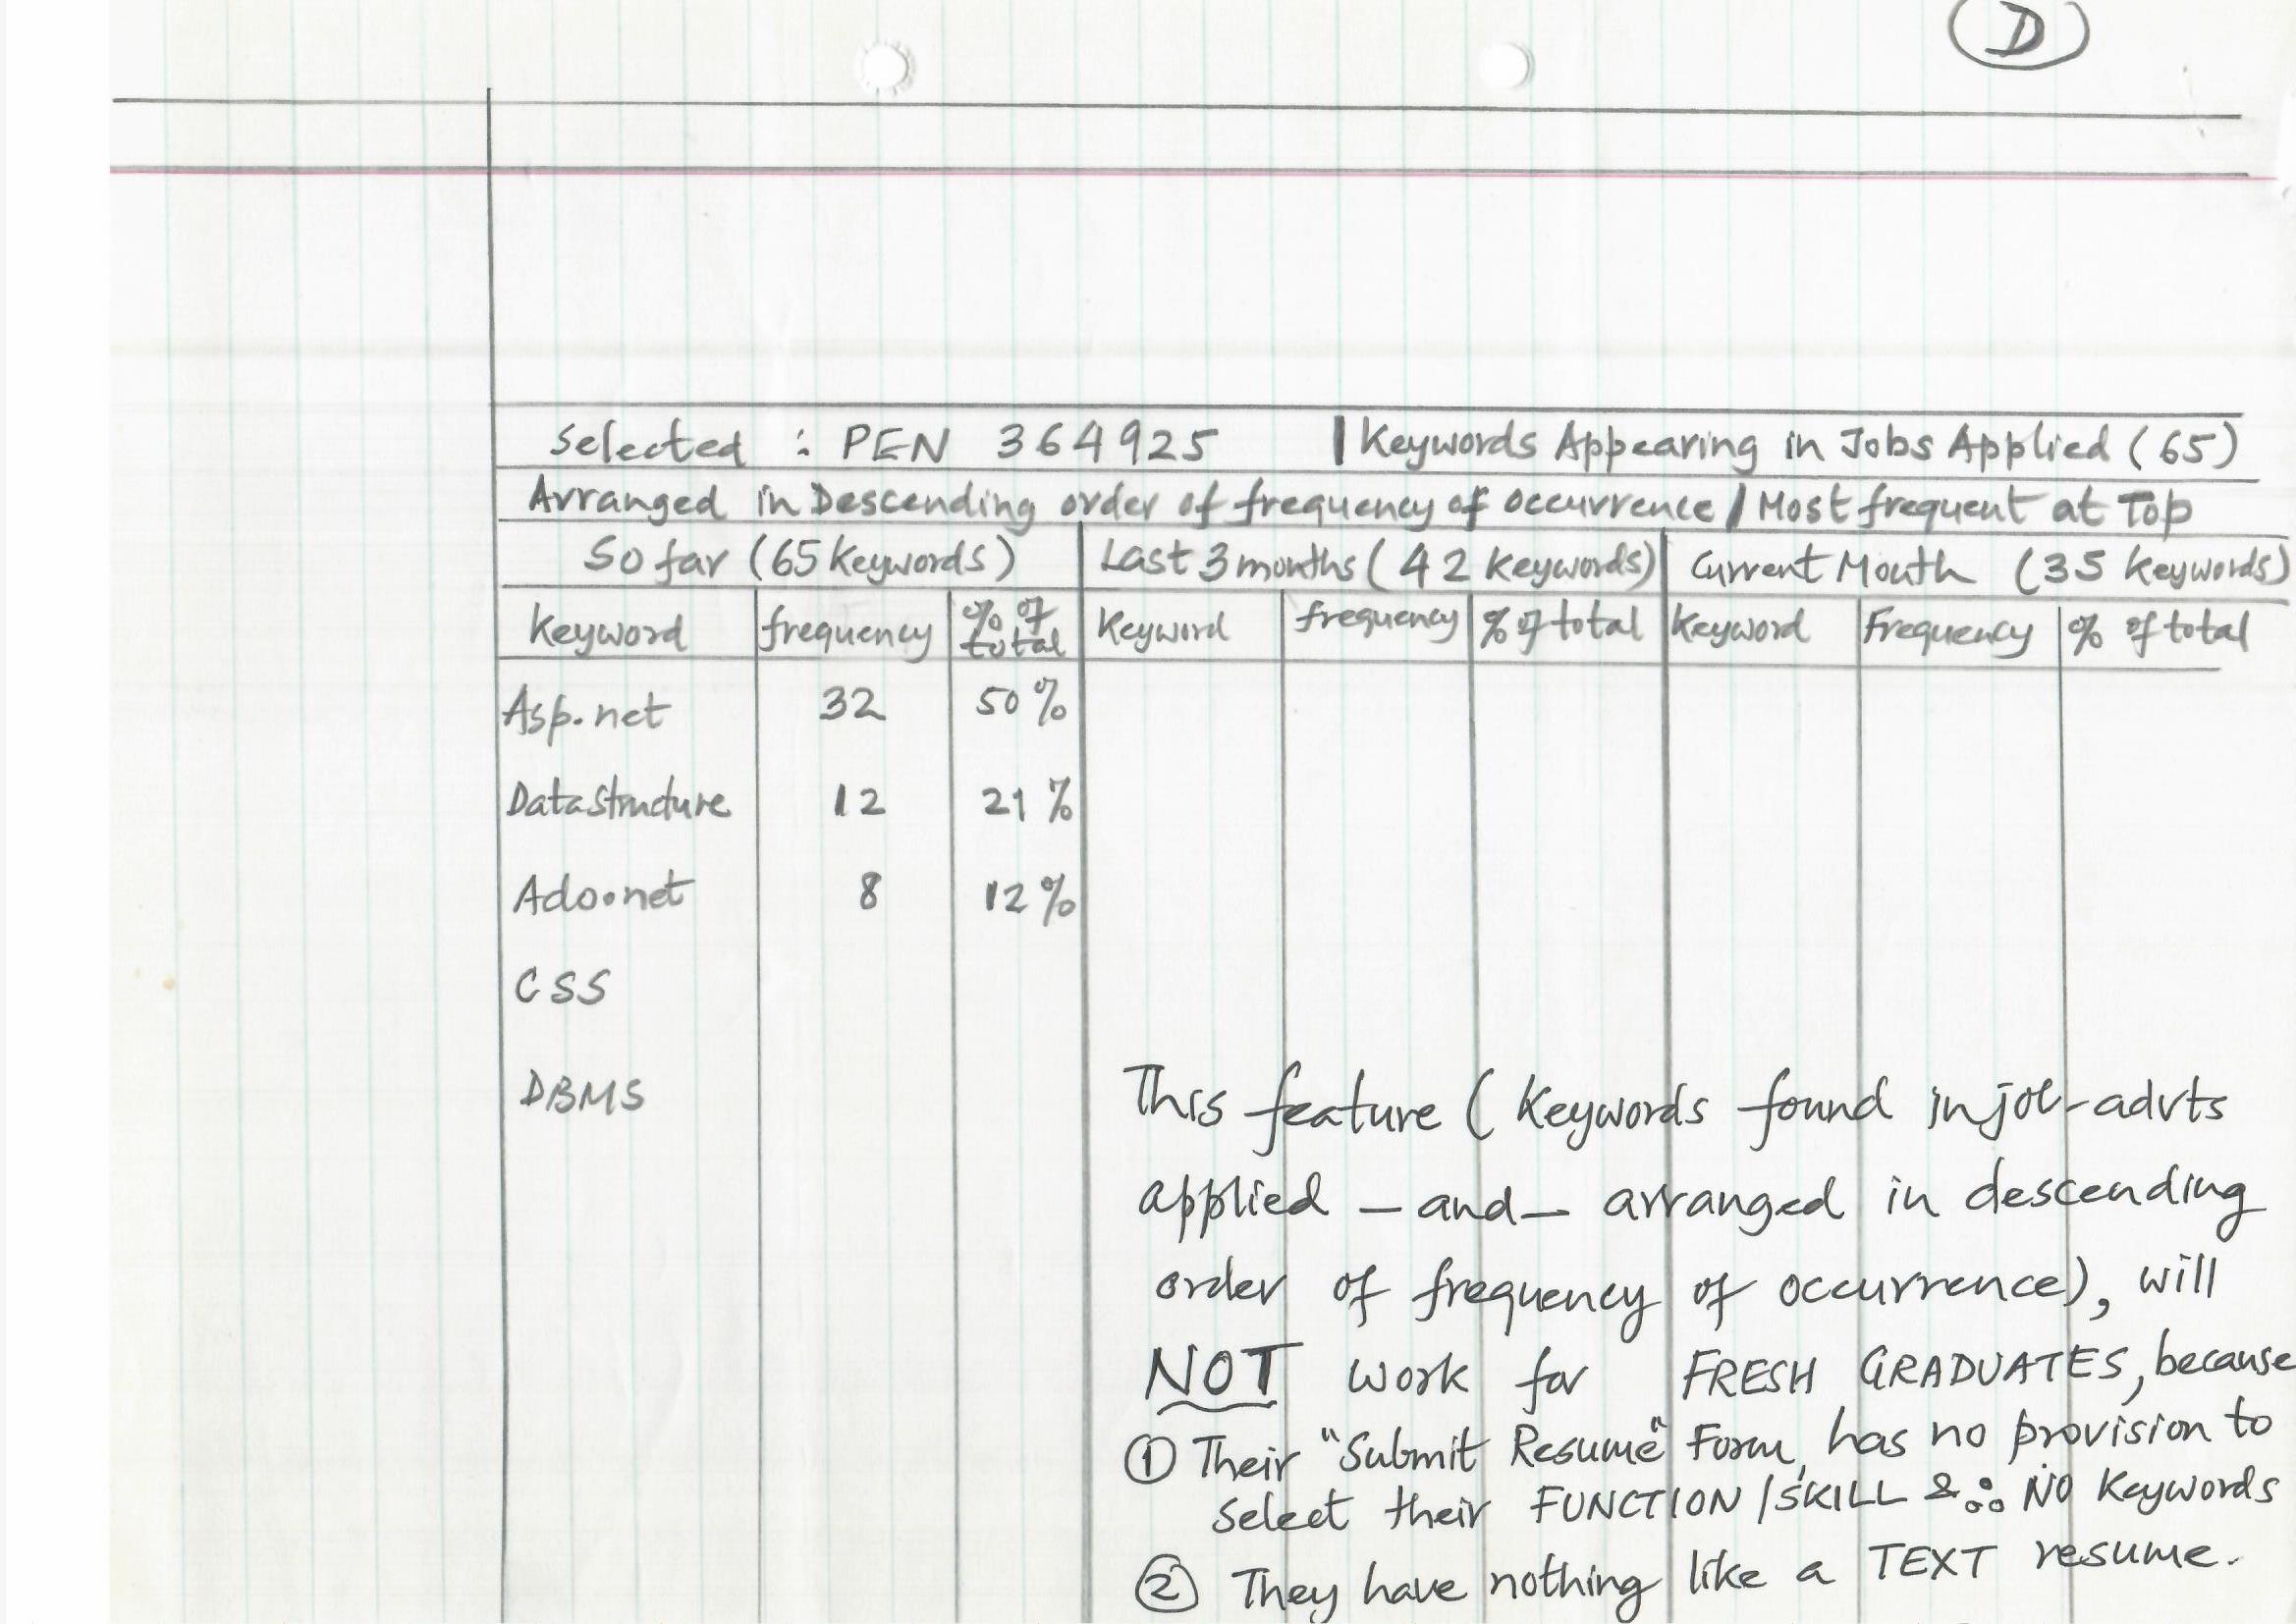 D
Selected : PEN 364925 | Keywords Appearing in Jobs Applied (65)
Arranged in Descending order of frequency of occurrence / Most frequent at Top
So far (65 Keywords) Last 3 months (42 Keywords) Current Month (35 Keywords)
Keyword frequency % of total Keyword frequency % of total Keyword Frequency % of total
Asp.net 32 50%
Data structure 12 21%
Ado.net 8 12%
CSS
DBMS
This feature (Keywords found in job-advts
applied - and - arranged in descending
order of frequency of occurrence), will
NOT work for FRESH GRADUATES, because
① Their "Submit Resume" Form, has no provision to
select their FUNCTION/SKILL & ∴ NO Keywords
② They have nothing like a TEXT resume.